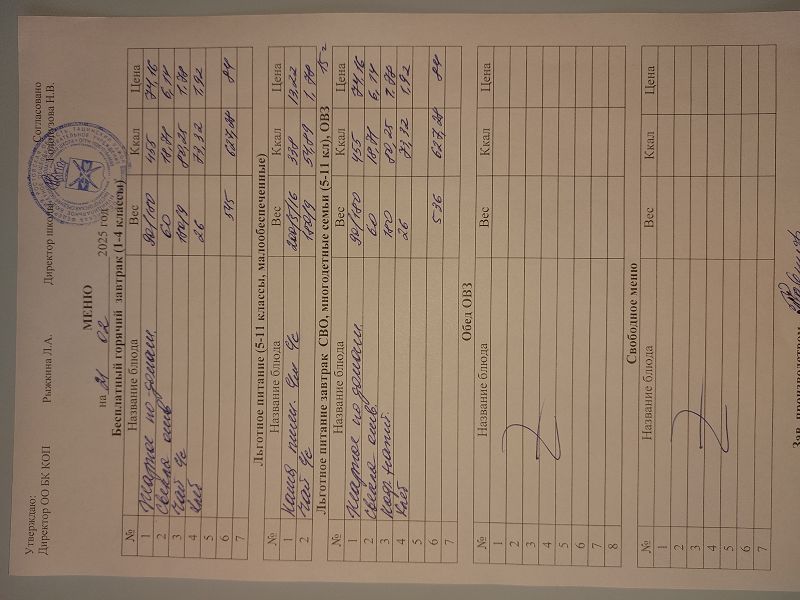 Утверждаю: Согласовано
Директор ОО БК КОП Рыжкина Л.А. Директор школы Голопузова Н.В.
МЕНЮ
на 21 02 2025 год
Бесплатный горячий завтрак (1-4 классы)
№ Название блюда Вес Ккал Цена
1 Жаркое по-домаш. 90/180 455 74,16
2 Свекла отв 60 18,71 6,14
3 Чай 4с 180/9 80,25 1,78
4 Хлеб 26 73,32 1,92
5
6 545 627,28 84
7
Льготное питание (5-11 классы, малообеспеченные)
№ Название блюда Вес Ккал Цена
1 338 13,22
2 Чай 4с 180/9 1,78
Льготное питание завтрак СВО, многодетные семьи (5-11 кл), ОВЗ 15=
№ Название блюда Вес Ккал Цена
1 Жаркое по домаш. 90/180 455 74,16
2 Свекла отв 60 18,71 6,14
3 Коф. напит. 180 80,25 1,78
4 Хлеб 26 73,32 1,92
5
6 536 627,28 84
7
Обед ОВЗ
№ Название блюда Вес Ккал Цена
1
2
3
4
5
6
7
8
Свободное меню
№ Название блюда Вес Ккал Цена
1
2
3
4
5
6
7
Зав. производством